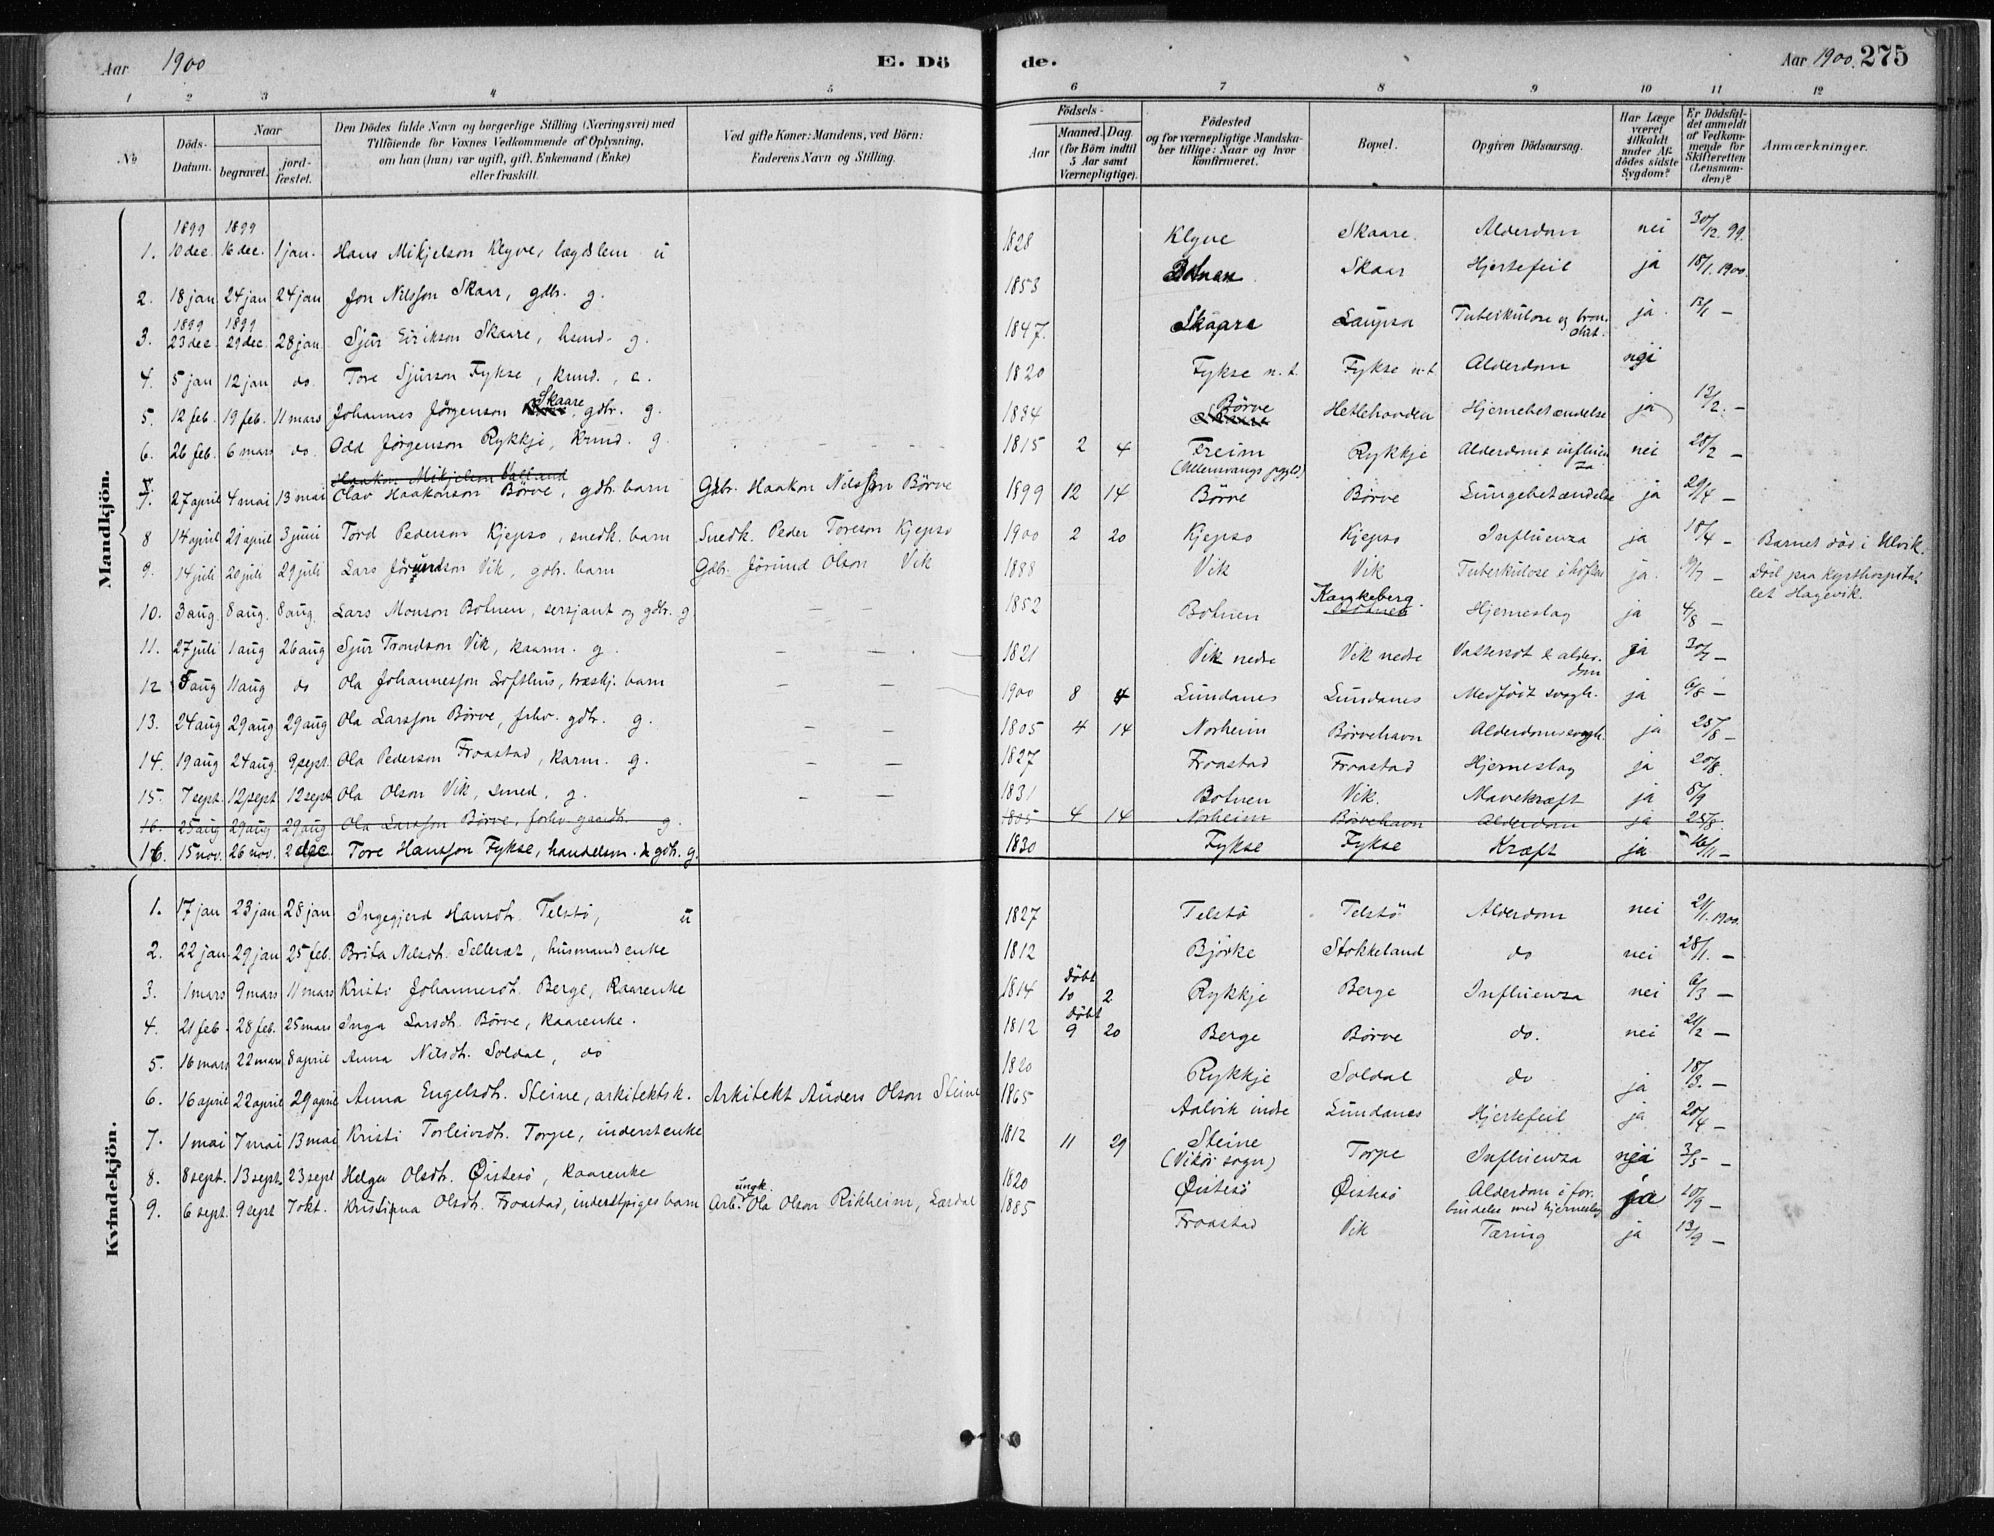 Aar 1900 E. Dö de. Aar 1900. 275
1 2 3 4 5 6 7 8 9 10 11 12
No
Döds-Datum.
Naar
begravet.
jord-fæstet.
Den Dödes fulde Navn og borgerlige Stilling (Næringsvei) med
Tilföiende for Voxnes Vedkommende af Oplysning,
om han (hun) var ugift, gift, Enkemand (Enke)
eller fraskilt.
Ved gifte Koner: Mandens, ved Börn:
Faderens Navn og Stilling.
Födsels-
Aar
Maaned. Dag.
(for Börn indtil
5 Aar samt
Værnepligtige).
Födested
og for værnepligtige Mandska-
ber tillige: Naar og hvor
konfirmeret.
Bopæl.
Opgiven Dödsaarsag.
Har Læge
været
tilkaldt
under Af-
dödes sidste
Sygdom?
Er Dödsfal-
det anmeldt
af Vedkom-
mende for
Skifteretten
(Lensman-
den)?
Anmærkninger.
Mandkjön.
1899 1899
1. 10 dec. 16 dec. 1 jan. Hans Mikjelson Klyve, lægdslem u 1828 Klyve Skaare. Alderdom nei 30/12. 99.
2. 18 jan 24 jan 24 jan Jon Nilsson Skaar, gdbr. g. 1853 Botnen Skaar Hjertefeil ja 18/1. 1900.
1899 1899
3. 23 dec 29 dec. 28 jan. Sjur Eirikson Skaare, husmd. g. 1847. Skaare Laupsa Tuberkulose og bron-chit. ja. 13/1 —
4. 5 jan 12 jan do. Tore Sjurson Fykse, kmd., e. 1820 Fykse n.t. Fykse n.t Alderdom nei
5. 12 feb. 19 feb. 11 mars Johannes Jörgenson Skaare gdbr. g. 1884 Börve Hetlehovden Hjernebetændelse ja 12/2. —
6. 26 feb. 6 mars do. Odd Jörgenson Rykkje, kmd. g. 1815 2 4 Freim (Ullensvangs pgjld) Rykkje Alderdom & influenza nei 28/2 —
Haakon Mikjelson
7. 27 april 4 mai 13 mai Olav Haakonson Börve, gdbr. barn Gdbr. Haakon Nilsson Börve 1899 12 14 Börve Börve Lungebetændelse ja 29/4 —
8 14 april 21 april 3 juni Tord Pederson Kjepso, snedk. barn Snedk. Peder Toreson Kjepso 1900 2 20 Kjepso Kjepso Influenza ja 18/4 — Barnet död i Ulvik.
9. 14 juli 20 juli 29 juli Lars Jörundson Vik, gdbr. barn Gdbr. Jörund Olson Vik 1888 Vik Vik Tuberkulose i hoften ja. 19/7 — Död paa kysthospita-
let Hagevik.
10. 3 aug 8 aug. 8 aug. Lars Monson Botnen, sersjant og gdbr. g — — 1852 Botnen Kaukeberg. Botnen Hjerneslag ja 4/8 —
11. 27 juli 1 aug 26 aug Sjur Trondson Vik, kaarm. g. — — 1821 Vik nedre Vik nedre Vattersot & alder-dom ja 30/7 —
12 5 aug 11 aug do Ola Johannesson Lofthus, træskj. barn — — 1900 8 4 Lundanes Lundanes Medfödt svagh. ja 6/8 —
13. 24 aug 29 aug 29 aug Ola Larsson Börve, fhv. gdbr. g. — — 1805 4 14 Norheim Börvehavn Alderdomssvagh. ja 25/8 —
14. 19 aug 24 aug. 9 sept. Ola Pederson Froastad, karm. g. — — 1827 Froastad Froastad Hjerneslag ja 20/8.
15. 7 sept. 12 sept 12 sept Ola Olson Vik, smed, g. — — 1831 Botnen Vik. Mavekræft ja 8/9
16. 25 aug 29 aug 29 aug Ola Larsson Börve, forhv. gaardbr. g. 1805 4 14 Norheim Börvehavn Alderdom ja 25/8.
16. 15 nov. 26 nov. 2 dec. Tore Hansson Fykse, handelsm. & gdbr. g. 1830 Fykse Fykse Kræft ja 16/11 —
Kvindekjön.
1. 17 jan 23 jan. 28 jan Ingegjerd Hansdtr. Telstö, u 1827 Telstö Telstö Alderdom nei 21/1. 1900.
2. 22 jan. 29 jan 25 feb. Brita Nilsdtr. Selleræt, husmandsenke 1812 Björke Stokkeland do nei 28/1. —
3. 1 mars 9 mars 11 mars Kristi Johannesdtr. Berge, Kaarenke 1814 döbt 10 2 Rykkje Berge Influenza nei 6/3 —
4. 21 feb. 28 feb. 25 mars Inga Larsdtr. Börve, kaarenke. 1812 döbt 9 20 Berge Börve do. nei 21/2 —
5. 16 mars 22 mars 8 april Anna Nilsdtr. Soldal, do 1820 Rykkje Soldal do ja 18/3. —
6. 16 april 22 april 29 april Anna Engelsdtr. Steine, arkitektsk. Arkitekt Anders Olson Steine 1865 Aalvik indre Lundanes Hjertefeil ja 20/4 —
7. 1 mai 7 mai 13 mai Kristi Torleivsdtr. Torpe, inderstenke 1812 11 29 Steine (Vikör sogn) Torpe Influenza nei 3/5 —
8. 8 sept. 13 sept. 23 sept Helga Olsdtr. Öistesö, kaarenke 1820 Öistesö Öistesö Alderdom i for-
bindelse med hjerneslag ja 10/9 —
9. 6 sept. 9 sept 7 okt. Kristina Olsdtr. Froastad, inderstpiges barn Arb. ungk. Ola Olson Rikheim, Lærdal 1885 Froastad Vik Tæring ja 13/9 —